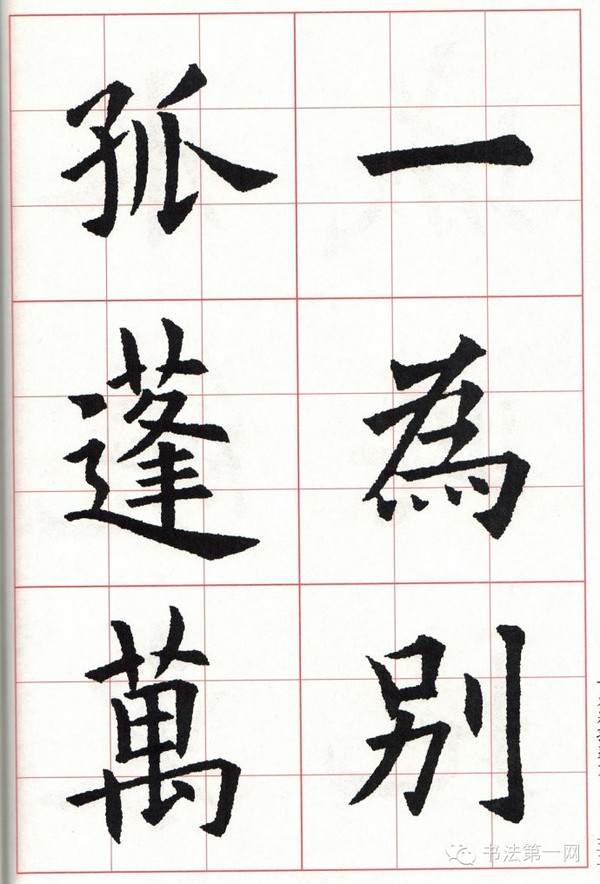 一為别
孤蓬萬
书法第一网